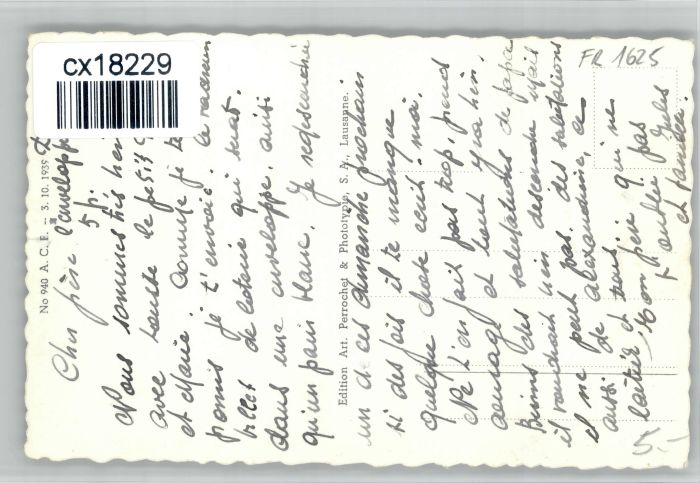 cx18229
FR 1625
No 940 A. C. F. — 3. 10. 1939
Edition Art. Perrochet & Phototypie, S. A., Lausanne.
Cher frère
l'enveloppe
5 p.
Nous sommes très
avec le petit
et Marie. Comme je te
promis je t'envoie le
billet de loterie qui
dans une enveloppe, ainsi
qu'un pain blanc. Je redescendrai
un de ces dimanche prochain
si des fois il te manque
quelque chose écrit-moi.
Ne t'en fait pas trop, prend
courage et tout ira bien.
Reçois des salutations de papa
il voudrait bien descendre mais
il ne peut pas. des salutations
aussi de Alexandrine, de
et tous
ton frère q. pas
Jules
et famille.
5.-